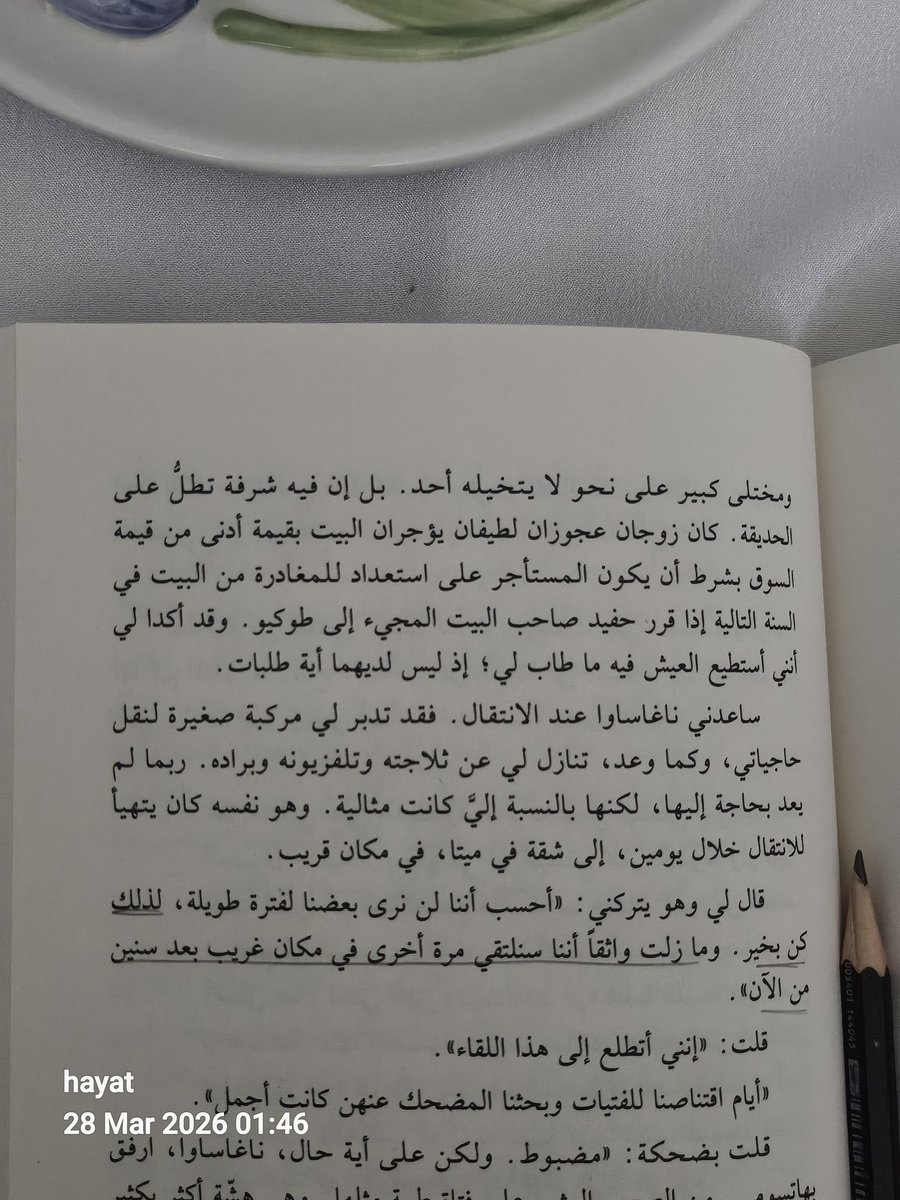 ومختلى كبير على نحو لا يتخيله أحد. بل إن فيه شرفة تطلُّ على
الحديقة. كان زوجان عجوزان لطيفان يؤجران البيت بقيمة أدنى من قيمة
السوق بشرط أن يكون المستأجر على استعداد للمغادرة من البيت في
السنة التالية إذا قرر حفيد صاحب البيت المجيء إلى طوكيو. وقد أكدا لي
أنني أستطيع العيش فيه ما طاب لي؛ إذ ليس لديهما أية طلبات.
ساعدني ناغاساوا عند الانتقال. فقد تدبر لي مركبة صغيرة لنقل
حاجياتي، وكما وعد، تنازل لي عن ثلاجته وتلفزيونه وبراده. ربما لم
يعد بحاجة إليها، لكنها بالنسبة إليَّ كانت مثالية. وهو نفسه كان يتهيأ
للانتقال خلال يومين، إلى شقة في ميتا، في مكان قريب.
قال لي وهو يتركني: «أحسب أننا لن نرى بعضنا لفترة طويلة، لذلك
كن بخير. وما زلت واثقاً أننا سنلتقي مرة أخرى في مكان غريب بعد سنين
من الآن».
قلت: «إنني أتطلع إلى هذا اللقاء».
«أيام اقتناصنا للفتيات وبحثنا المضحك عنهن كانت أجمل».
قلت بضحكة: «مضبوط. ولكن على أية حال، ناغاساوا، ارفق
hayat
28 Mar 2026 01:46